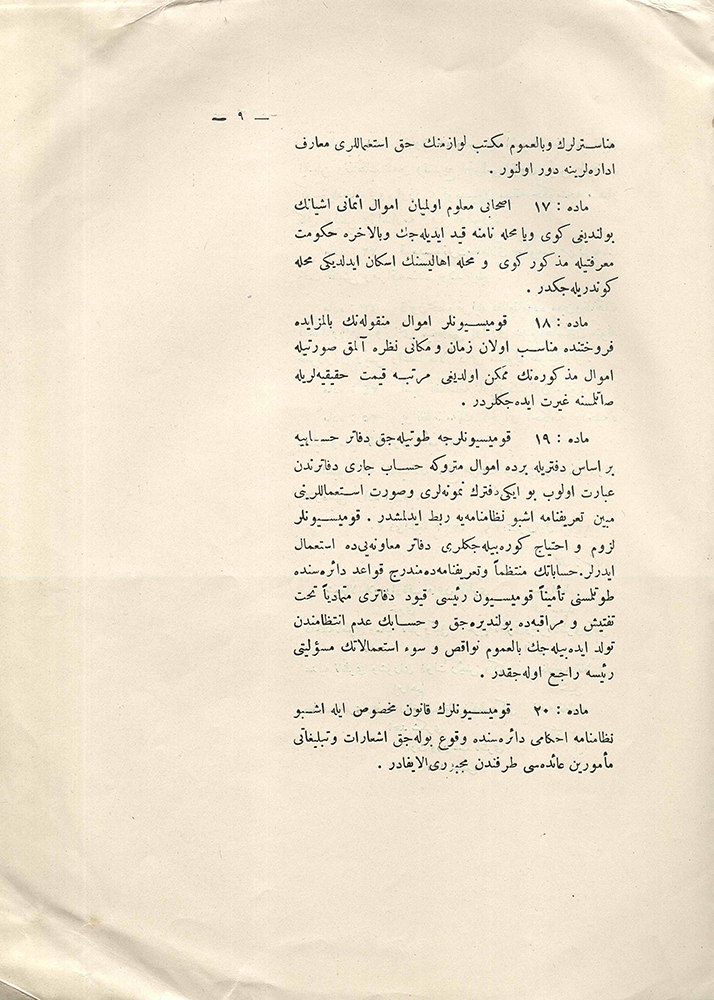 — ٩ —
مناسترلرك وبالعموم مكتب لوازمنك حق استعماللری معارف
اداره‌لرینه دور اولنور .
ماده : ١٧ اصحابی معلوم اولمیان اموال اثمانی اشیانك
بولندیغی كوی ویا محله نامنه قید ایدیله‌جك وبالاخره حكومت
معرفتیله مذكور كوی و محله اهالیسنك اسكان ایدلدیكی محله
كوندریله‌جكدر .
ماده : ١٨ قومیسیونلر اموال منقوله‌نك بالمزایده
فروختنده مناسب اولان زمان و مكانی نظره آلمق صورتیله
اموال مذكوره‌نك ممكن اولدیغی مرتبه قیمت حقیقیه‌لریله
صاتلسنه غیرت ایده‌جكلردر .
ماده : ١٩ قومیسیونلرجه طوتیله‌جق دفاتر حسابیه
بر اساس دفتریله برده اموال متروكه حساب جاری دفاترندن
عبارت اولوب بو ایكی دفترك نمونه‌لری وصورت استعماللرینی
مبین تعریفنامه اشبو نظامنامه‌یه ربط ایدلمشدر . قومیسیونلر
لزوم و احتیاج كوره‌بیله‌جكلری دفاتر معاونه‌یی‌ده استعمال
ایدرلر. حساباتك منتظماً وتعریفنامه‌ده مندرج قواعد دائره‌سنده
طوتلسنی تأمیناً قومیسیون رئیسی قیود دفاتری متمادیاً تحت
تفتیش و مراقبه‌ده بولندیره‌جق و حسابك عدم انتظامندن
تولد ایده‌بیله‌جك بالعموم نواقص و سوء استعمالاتك مسؤلیتی
رئیسه راجع اوله‌جقدر .
ماده : ٢٠ قومیسیونلرك قانون مخصوص ایله اشبو
نظامنامه احكامی دائره‌سنده وقوع بوله‌جق اشعارات وتبلیغاتی
مأمورین عائده‌سی طرفندن مجبوری‌الایفادر .